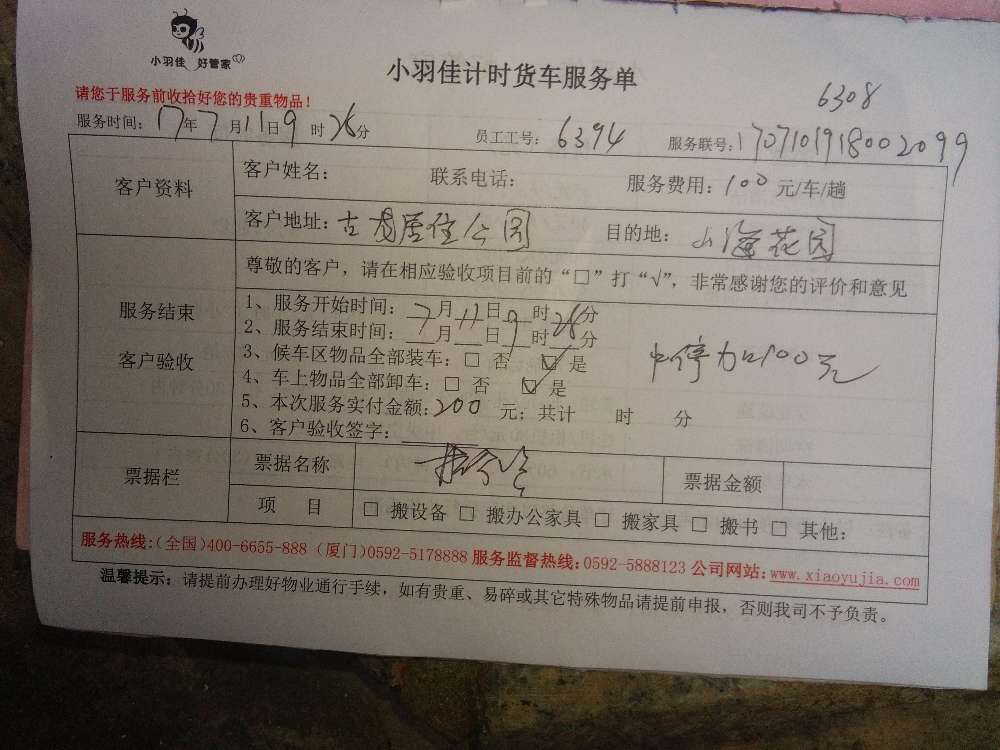 小羽佳 好管家
小羽佳计时货车服务单
6308
请您于服务前收拾好您的贵重物品!
服务时间: 17年7月11日9时26分 员工工号: 6394 服务联号: 1707101918002099
客户资料
客户姓名: 联系电话: 服务费用: 100元/车/趟
客户地址: 古龙居住公园 目的地: 山海花园
服务结束
客户验收
尊敬的客户，请在相应验收项目前的“□”打“√”，非常感谢您的评价和意见
1、服务开始时间: 7月11日9时26分
2、服务结束时间: 月 日 时 分
3、候车区物品全部装车: □ 否 ☑ 是
中停加100元
4、车上物品全部卸车: □ 否 ☑ 是
5、本次服务实付金额: 200 元; 共计 时 分
6、客户验收签字:
票据栏
票据名称 票据金额
项 目 □ 搬设备 □ 搬办公家具 □ 搬家具 □ 搬书 □ 其他:
服务热线:(全国)400-6655-888 (厦门)0592-5178888 服务监督热线:0592-5888123 公司网站:www.xiaoyujia.com
温馨提示: 请提前办理好物业通行手续，如有贵重、易碎或其它特殊物品请提前申报，否则我司不予负责。